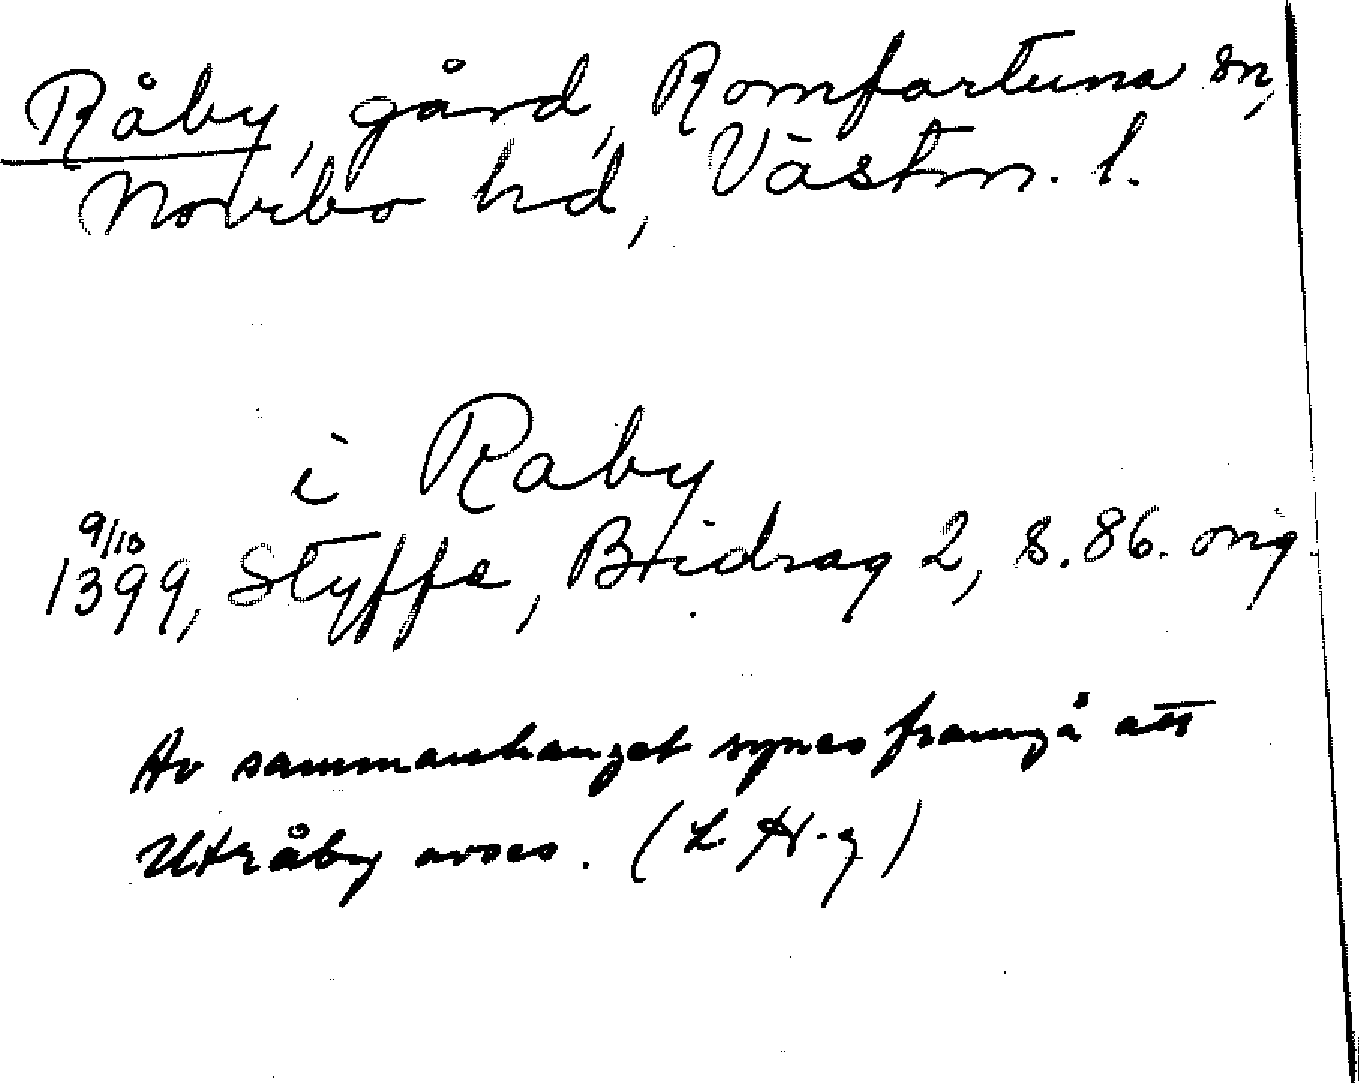 Råby, gård, Romfartuna sn,
Norrbo hd, Västm. l.
i Raby
9/10
1399, Styffe, Bidrag 2, s. 86. orig.
Av sammanhanget synes framgå att
Utråby avses. (L H-g)